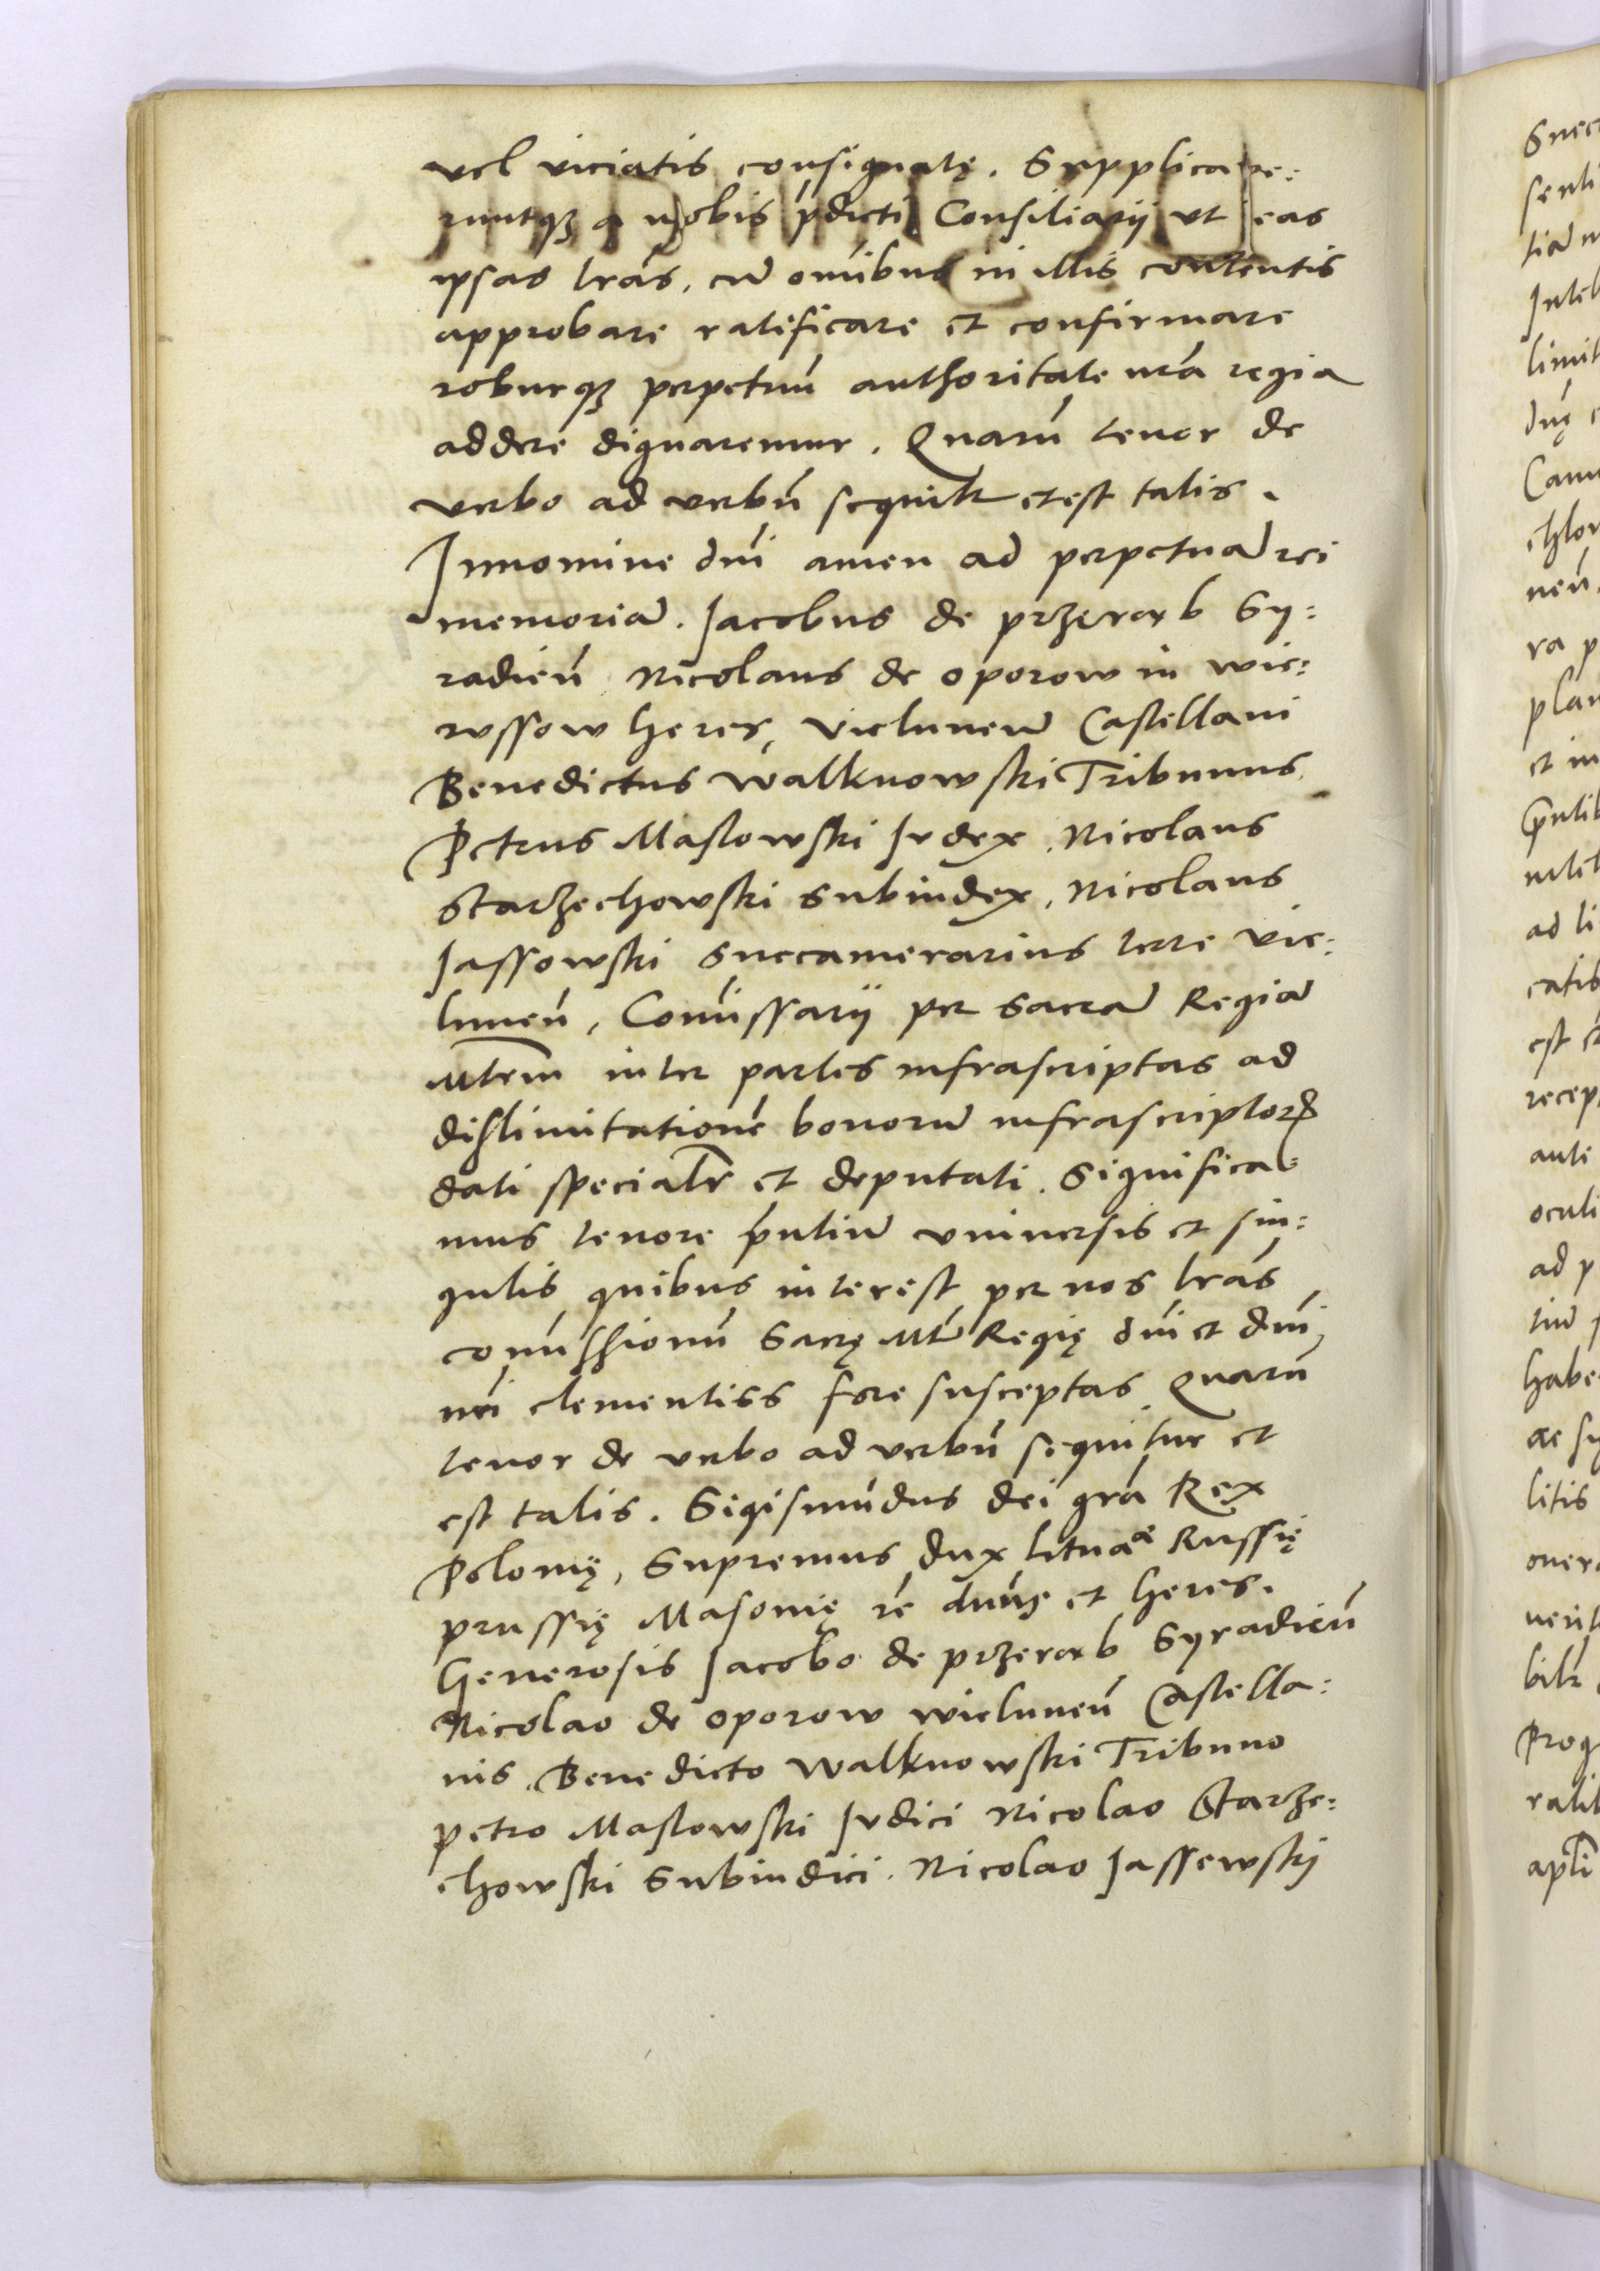 vel viciatis consignatę. Supplicave:
runtqз a nobis p̃dicti Consiliarij ut eas
ipsas lr̃as, cũ om̃ibus in illis contentis
approbare ratificare et confirmare
roburqз perpetuũ authoritate nr̃a regia
addere dignaremur. Quarũ tenor de
verbo ad verbũ sequitr et est talis.
In nomine dñi amen ad perpetuã rei
memoriã. Jacobus de przerąb Sy:
radieñ Nicolaus de oporow in wie:
russow heres, vielunen̄ Castellani
Benedictus walknowski Tribunus
Petrus Maslowski Judex, Nicolaus
Starzechowski subiudex, Nicolaus
Jassowski Succamerarius terre vie:
luneñ, Com̃issarij per sacrã Regiã
Mtem inter partes infrascriptas ad
dislimitationẽ bonorũ infrascriptorꝝ
dati specialr̃ et deputati. Significa:
mus tenore p̃ntiũ universis et sin:
gulis quibus interest per nos lr̃as
com̃issionũ Sacrę Mt̃ Regię dñi et dñi
nr̃i clementiss fore susceptas Quarũ
tenor de verbo ad verbũ sequitur et
est talis. Sigismũdus dei gr̃a Rex
Polonię, Supremus dux lituaæ Russię
prussię Masovię r̃e dũus et heres.
Generosis Jacobo de przerąb Syradieñ
Nicolao de oporow wieluneñ Castella:
nis. Benedicto walknowski Tribuno
petro Maslowski Judici Nicolao Starze:
chowski Subiudici. Nicolao Jassewskÿ